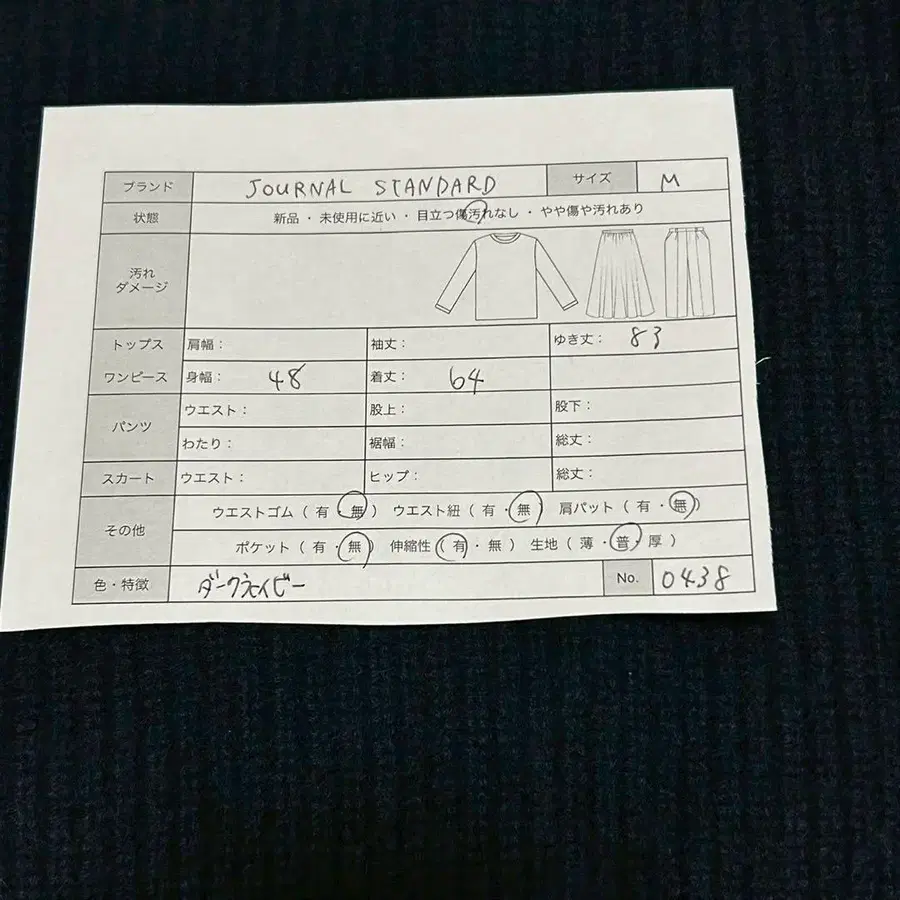 ブランド JOURNAL STANDARD サイズ M
状態 新品 ・ 未使用に近い ・ 目立つ傷汚れなし ・ やや傷や汚れあり
汚れ
ダメージ
トップス 肩幅： 袖丈： ゆき丈： 83
ワンピース 身幅： 48 着丈： 64
パンツ ウエスト： 股上： 股下：
わたり： 裾幅： 総丈：
スカート ウエスト： ヒップ： 総丈：
その他 ウエストゴム（ 有 ・ 無 ） ウエスト紐（ 有 ・ 無 ） 肩パット（ 有 ・ 無 ）
ポケット（ 有 ・ 無 ） 伸縮性（ 有 ・ 無 ） 生地（ 薄 ・ 普 ・ 厚 ）
色・特徴 ダークネイビー No. 0438